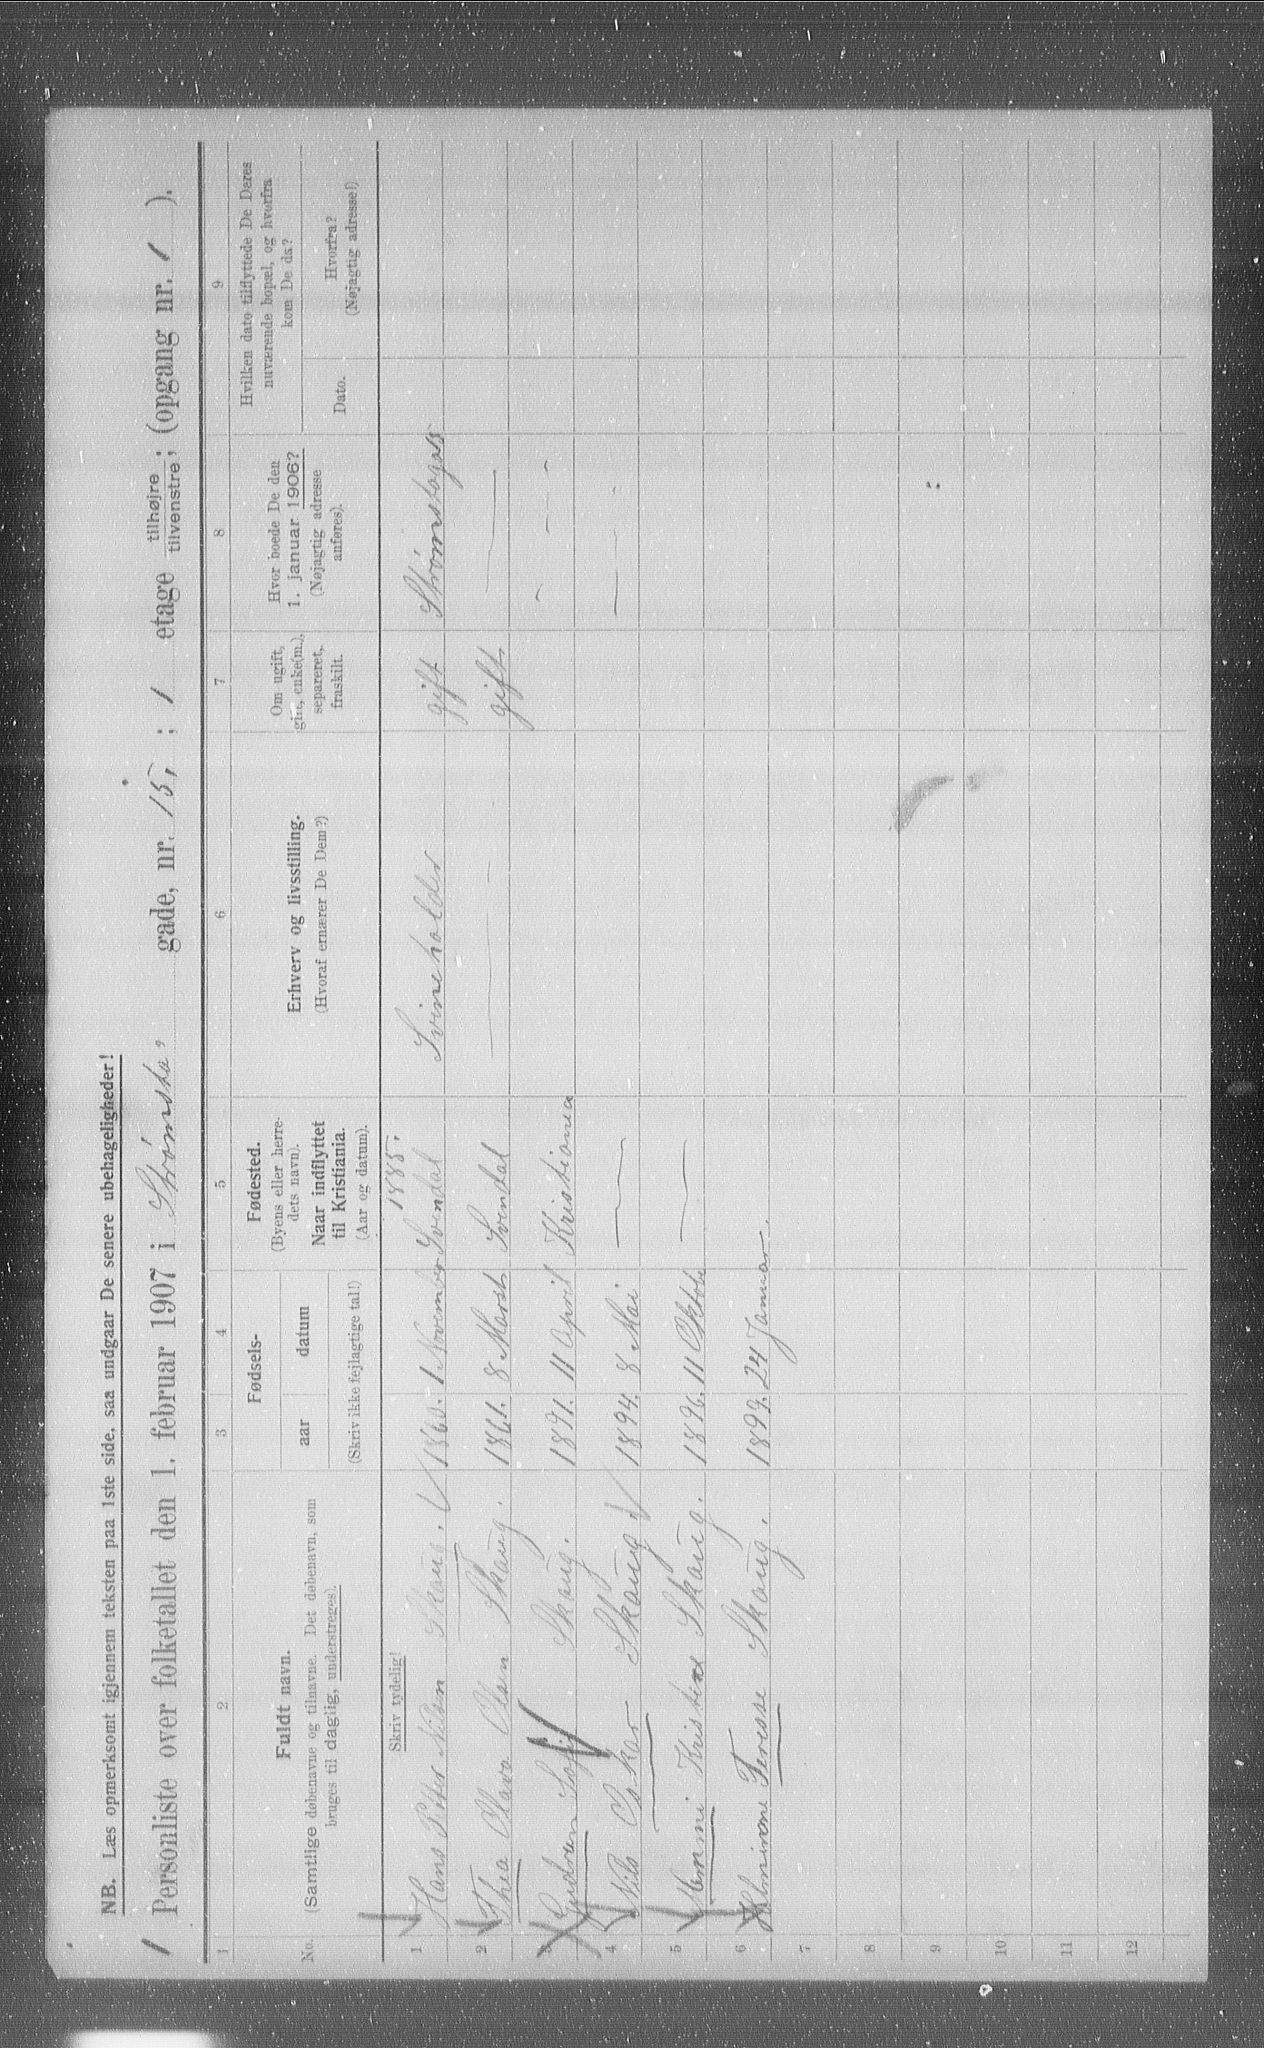 NB. Læs opmerksomt igjennem teksten paa 1ste side, saa undgaar De senere ubehageligheder!
1 Personliste over folketallet den 1. februar 1907 i Strømsta" gade, nr. 15, ; 1 etage tilhøjre / tilvenstre; (opgang nr. 1 ).
1 2 3 4 5 6 7 8 9
No.
Fuldt navn.
(Samtlige døbenavne og tilnavne. Det døbenavn, som
bruges til daglig, understreges).
Fødsels-
aar datum
(Skriv ikke fejlagtige tal!)
Fødested.
(Byens eller herre-
dets navn).
Naar indflyttet
til Kristiania.
(Aar og datum).
Erhverv og livsstilling.
(Hvoraf ernærer De Dem?)
Om ugift,
gift, enke(m.),
separeret,
fraskilt.
Hvor boede De den
1. januar 1906?
(Nøjagtig adresse
anføres).
Hvilken dato tilflyttede De Deres
nuværende bopæl, og hvorfra
kom De da?
Dato.
Hvorfra?
(Nøjagtig adresse!)
Skriv tydelig!
1885.
1 Hans Petter Nilsen Skaug. 1860. 1 November Svindal Svineholder gift StrømstagaS
2 Thea Olava Olsen Skaug. 1861. 8 Marst Svindal — gift —
3 Gudrun Sofie Skaug. 1891. 11 April Kristiania - — -
4 Nils Oskar Skaug. 1894. 8 Mai. — — -
5 Kristine Skaug. 1896. 11 Oktobr —
6 Teresse Skaug. 1899. 24 Januar.
7
8
9
10
11
12